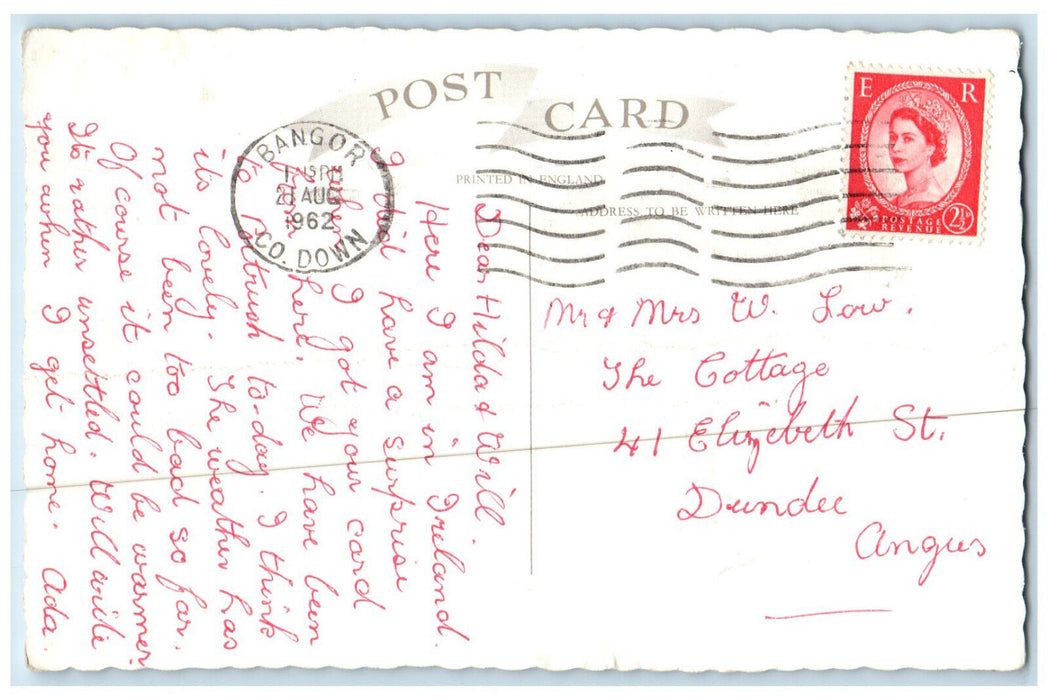 POST CARD
PRINTED IN ENGLAND
ADDRESS TO BE WRITTEN HERE
BANGOR
15PM
AUG
1962
CO. DOWN
E R
POSTAGE
REVENUE
2½D
Dear Hilda & Will
Here I am in Ireland.
I did have a surprise
when I got your card
from here. We have been
to P'trush to-day. I think
its lovely. The weather has
not been too bad so far.
Of course it could be warmer
Its rather unsettled. Will write
you when I get home. Ada.
Mr & Mrs W. Low.
The Cottage
41 Elizebeth St.
Dundee
Angus